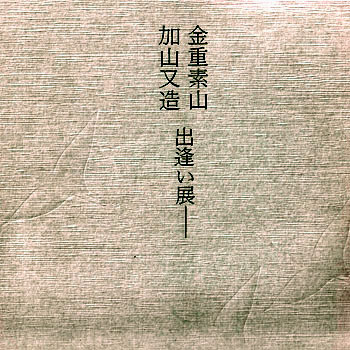 金重素山
加山又造 出逢い展──